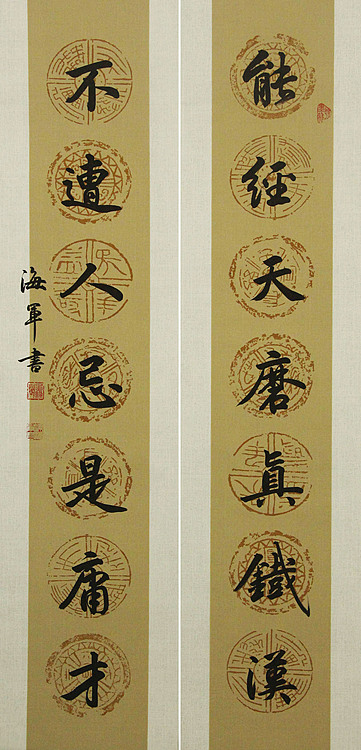 能經天磨真鐵漢
不遭人忌是庸才
海軍書